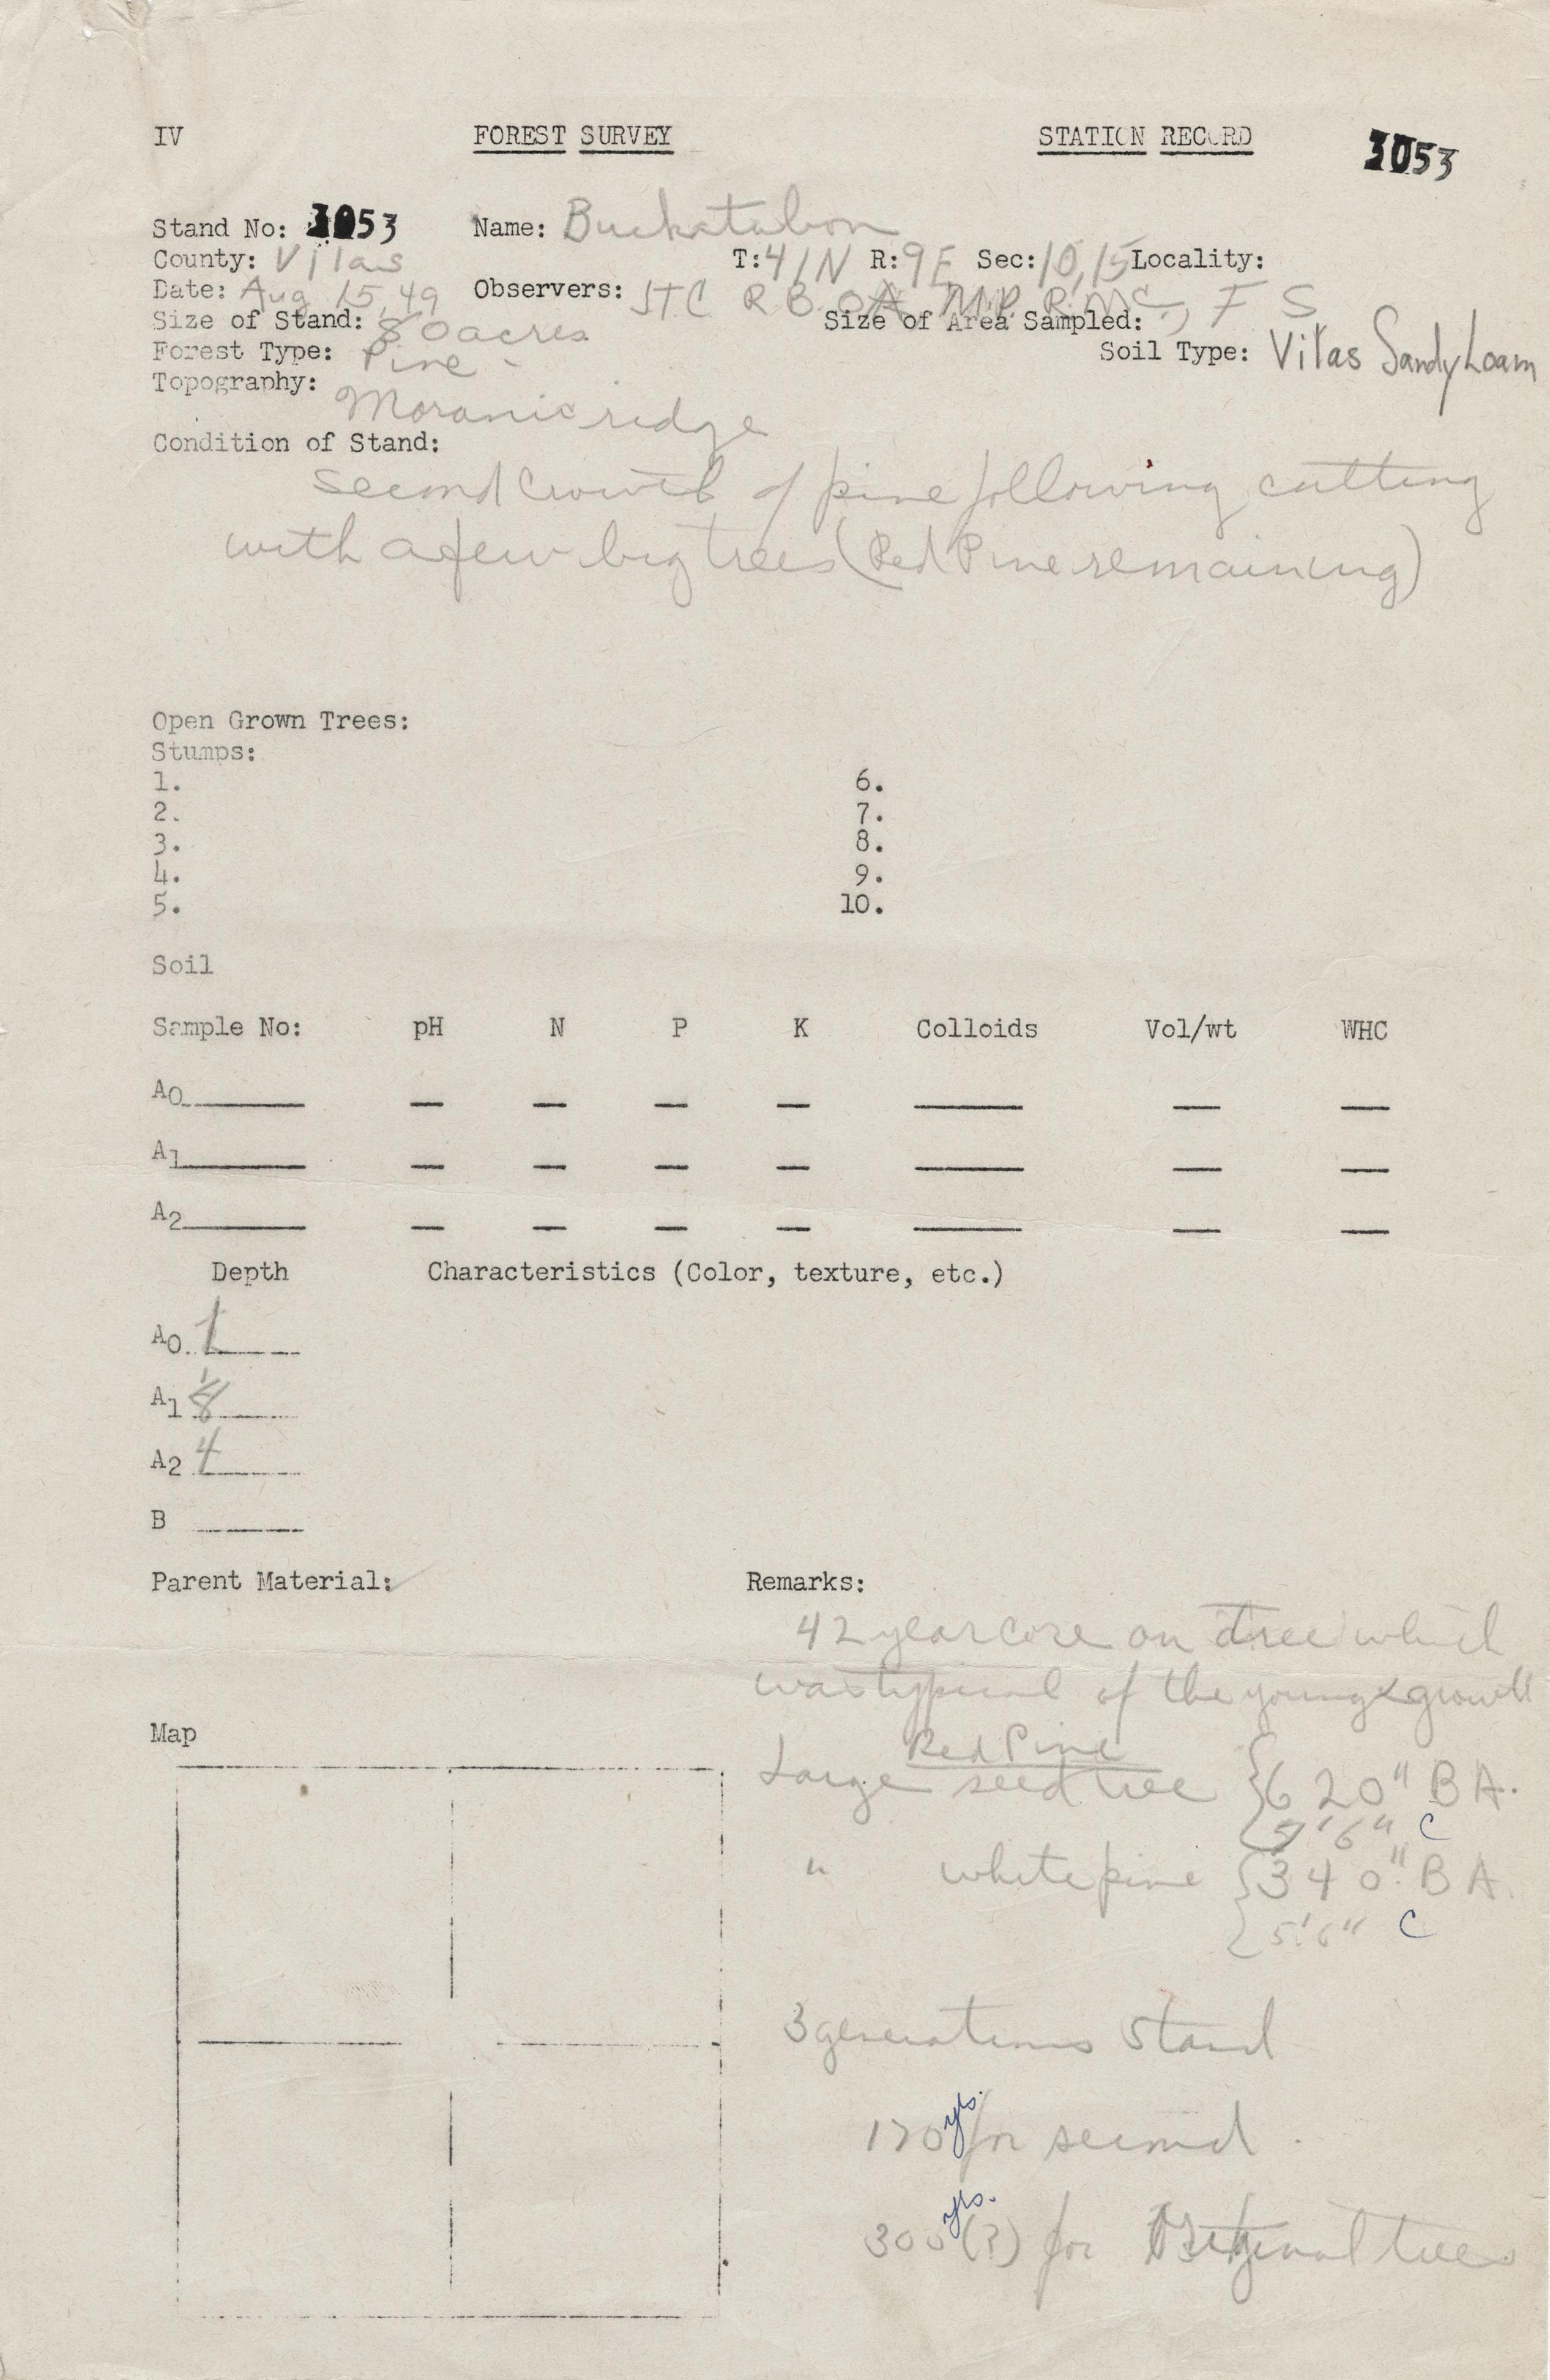 IV FOREST SURVEY STATION RECORD 3053
Stand No: 3053 Name: Buckatabon
County: Vilas T: 41N R: 9E Sec: 10,15 Locality:
Date: Aug 15, 49 Observers: JTC RB OA MP R. Mc, F S
Size of Stand: 80 acres Size of Area Sampled:
Forest Type: Pine - Soil Type: Vilas Sandy Loam
Topography: Moranic ridge
Condition of Stand:
second Growth of pine following cutting
with a few big trees (Red Pine remaining)
Open Grown Trees:
Stumps:
1. 6.
2. 7.
3. 8.
4. 9.
5. 10.
Soil
Sample No: pH N P K Colloids Vol/wt WHC
A0
A1
A2
Depth Characteristics (Color, texture, etc.)
A0 1
A1 1/8
A2 4
B
Parent Material: Remarks:
42 year core on tree which
was typical of the young growth
Map
Red Pine
Large seed tree { 620" BA.
5'6" C
" white pine { 340" BA.
5'6" C
3 generations stand
170 yrs. for second.
300 yrs. (?) for Original trees